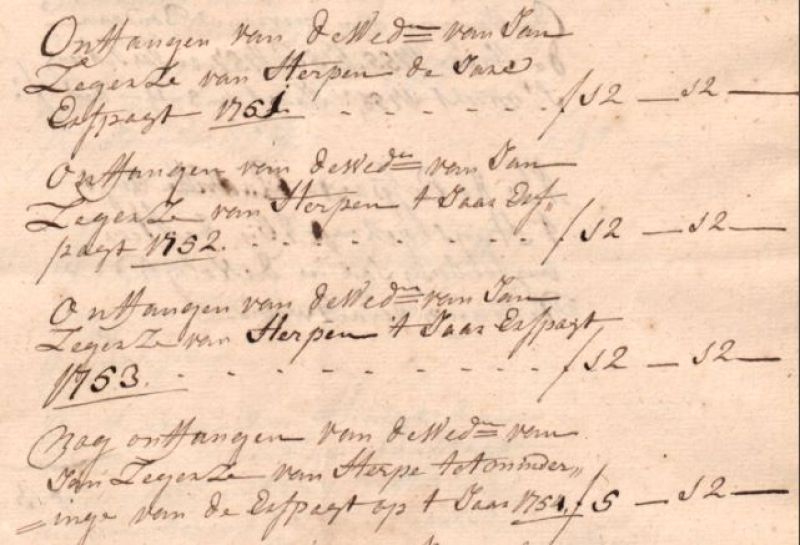 Ontfangen van de Wedn van Jan
Zegerze van Herpen de Jare
Erfpagt 1751. - - - - - - f 12 — 12 —
Ontfangen van de Wedn van Jan
Zegerze van Herpen t Jaar Erf„
pagt 1752. - - - - - - - - f 12 — 12 —
Ontfangen van de Wedn van Jan
Zegerze van Herpen t Jaar Erfpagt
1753. - - - - - - - - - f 12 — 12 —
Nog ontfangen van de Wedn van
Jan Zegerze van Herpe tot minder„
„inge van de Erfpagt op t Jaar 1754. f 5 — 12 —